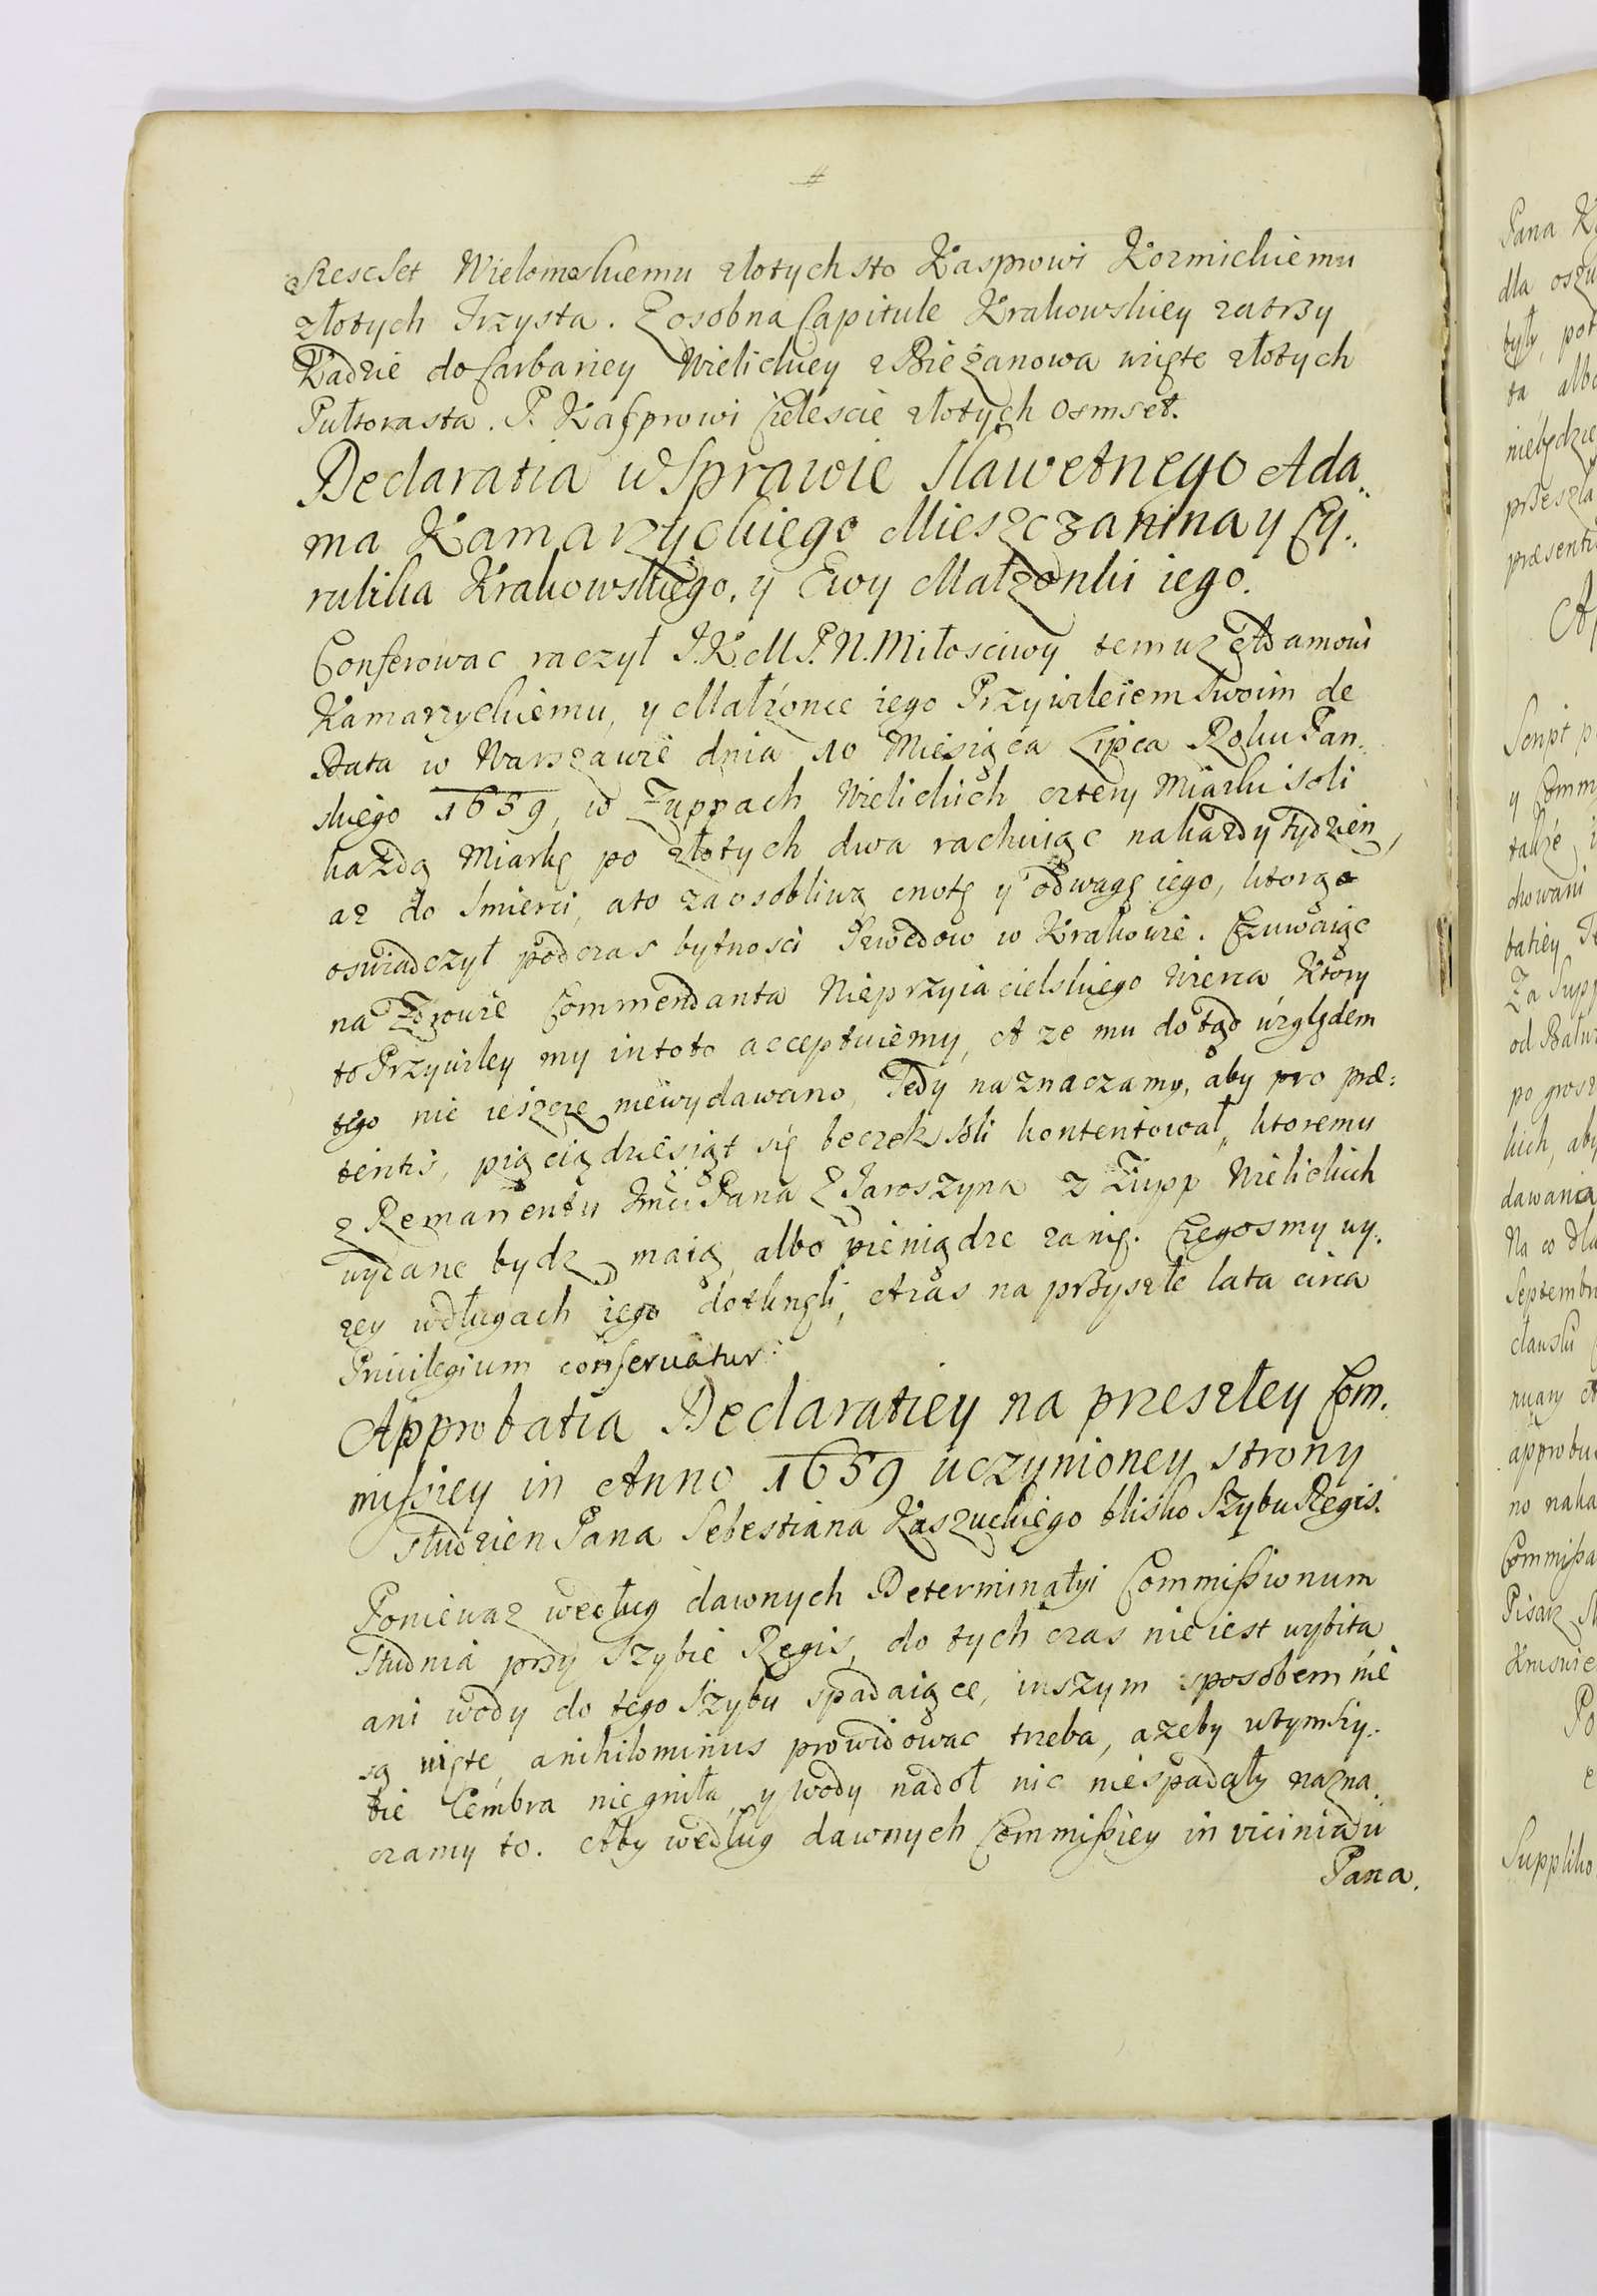 Szescset Wielomoskiemu złotych sto Kasprowi Kozmickiemu
złotych Trzysta. Zosobna Capitule Krakowskiey zatrzy
Kadzie do Carbariey Wielickiey z Bieżanowa wzięte złotych
Pułtorasta. P. Kasprowi Cieleście złotych osmset.
Declaratia w Sprawie Sławetnego Ada„
ma Kamarzyckiego Mieszczanina y Cy„
rulika Krakowskiego, y Ewy Małzonki iego.
Conferowac raczył J.K.M P.N. Miłosciwy temuz Adamowi
Kamarzyckiemu, y Małżonce iego Przywileiem Swoim de
Data w Warszawie dnia 10 Miesiąca Lipca Roku Pan„
skiego 1659, w Zuppach Wielickich cztery Miarki soli
każdą Miarkę po złotych dwa rachuiąc nakażdy Tydzien,
az do Smierci, ato zaosobliwą cnotę y odwagę iego, ktorą
oswiadczył podczas bytnosci Szwedow w Krakowie. Czuwaiąc
na Zdrowie Commendanta Nieprzyiacielskiego Wirca Ktory
to Przywiley my in toto acceptuiemy, A ze mu dotąd względem
tego nic ieszcze niewydawano, Tedy naznaczamy, aby pro præ=
tentis, piącią dziesiąt się beczek soli kontentował, ktoremu
z Remanentu Jmci Pana Z Jaroszyna z Zupp Wielickich
wydane bydz maią, albo pieniądze zanię. Czegosmy wy„
zey wdługach iego dotknęli, Azas na przyszłe lata circa
Privilegium conservatur.
Approbatia Declaratiey na przeszłey Com„
missiey in Anno 1659 uczynioney strony
Studzien Pana Sebestiana Kaszuckiego blisko Szybu Regis.
Poniewaz według dawnych Determinatyi Commissionum
Studnia przy Szybie Regis, do tych czas nie iest wybita
ani wody do tego Szybu spadaiące, inszym sposobem nie
są uięte, anihilominus prowidowac trzeba, azeby wtym Szy„
bie Cembra nie gniła, y wody nadoł nie niespadały nazna„
czamy to. Aby według dawnych Commissiey in viciniadu
Pana.